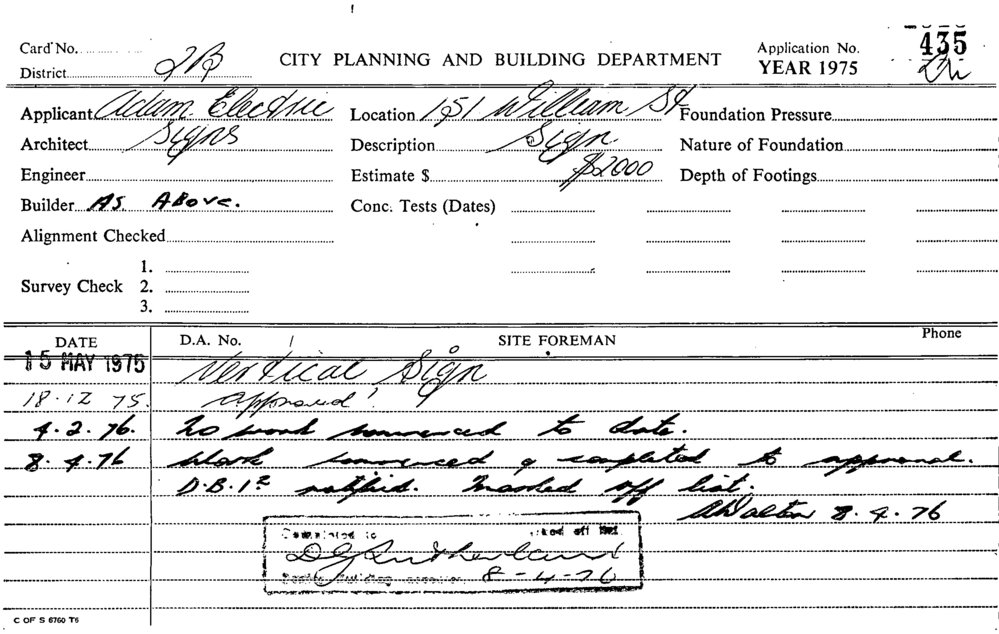 Card No.
District 2B
CITY PLANNING AND BUILDING DEPARTMENT
Application No. 435
YEAR 1975
Applicant Adam Electric
Location 151 William St
Foundation Pressure
Architect Signs
Description Sign
Nature of Foundation
Engineer
Estimate $ $2000
Depth of Footings
Builder As Above.
Conc. Tests (Dates)
Alignment Checked
Survey Check
1.
2.
3.
DATE
D.A. No.
SITE FOREMAN
Phone
15 MAY 1975 Vertical Sign
18.12 75. approved
4.2.76. no work commenced to date.
8.4.76 Work commenced & completed to approval.
D.B.I. notified. Marked off list.
8.4.76
off
D G Sutherland
Building 8-4-76
C OF S 6760 T6